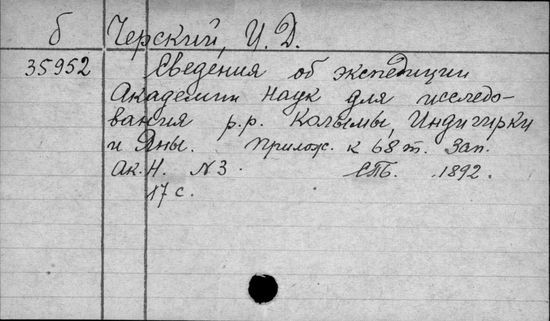 б Черский, И. Д.
35952 Сведения об экспедиции
Академии наук для исследо-
вания р.р. Колымы, Индигирки
и Яны. Прилож. к 68 т. Зап.
Ак. Н. №3. СПб. 1892.
17 с.